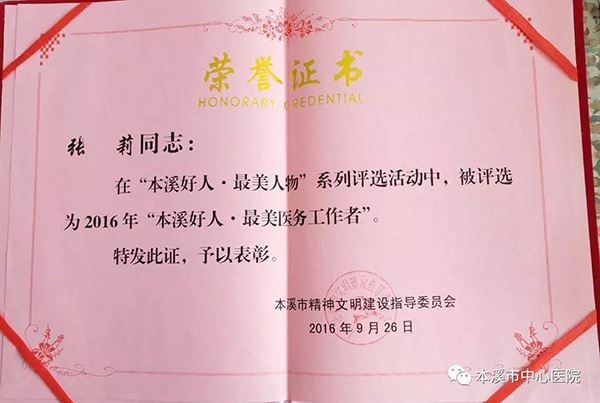 荣誉证书
HONORARY CREDENTIAL
张 莉同志：
在“本溪好人·最美人物”系列评选活动中，被评选
为2016年“本溪好人·最美医务工作者”。
特发此证，予以表彰。
本溪市精神文明建设指导委员会
2016年9月26日
本溪市中心医院